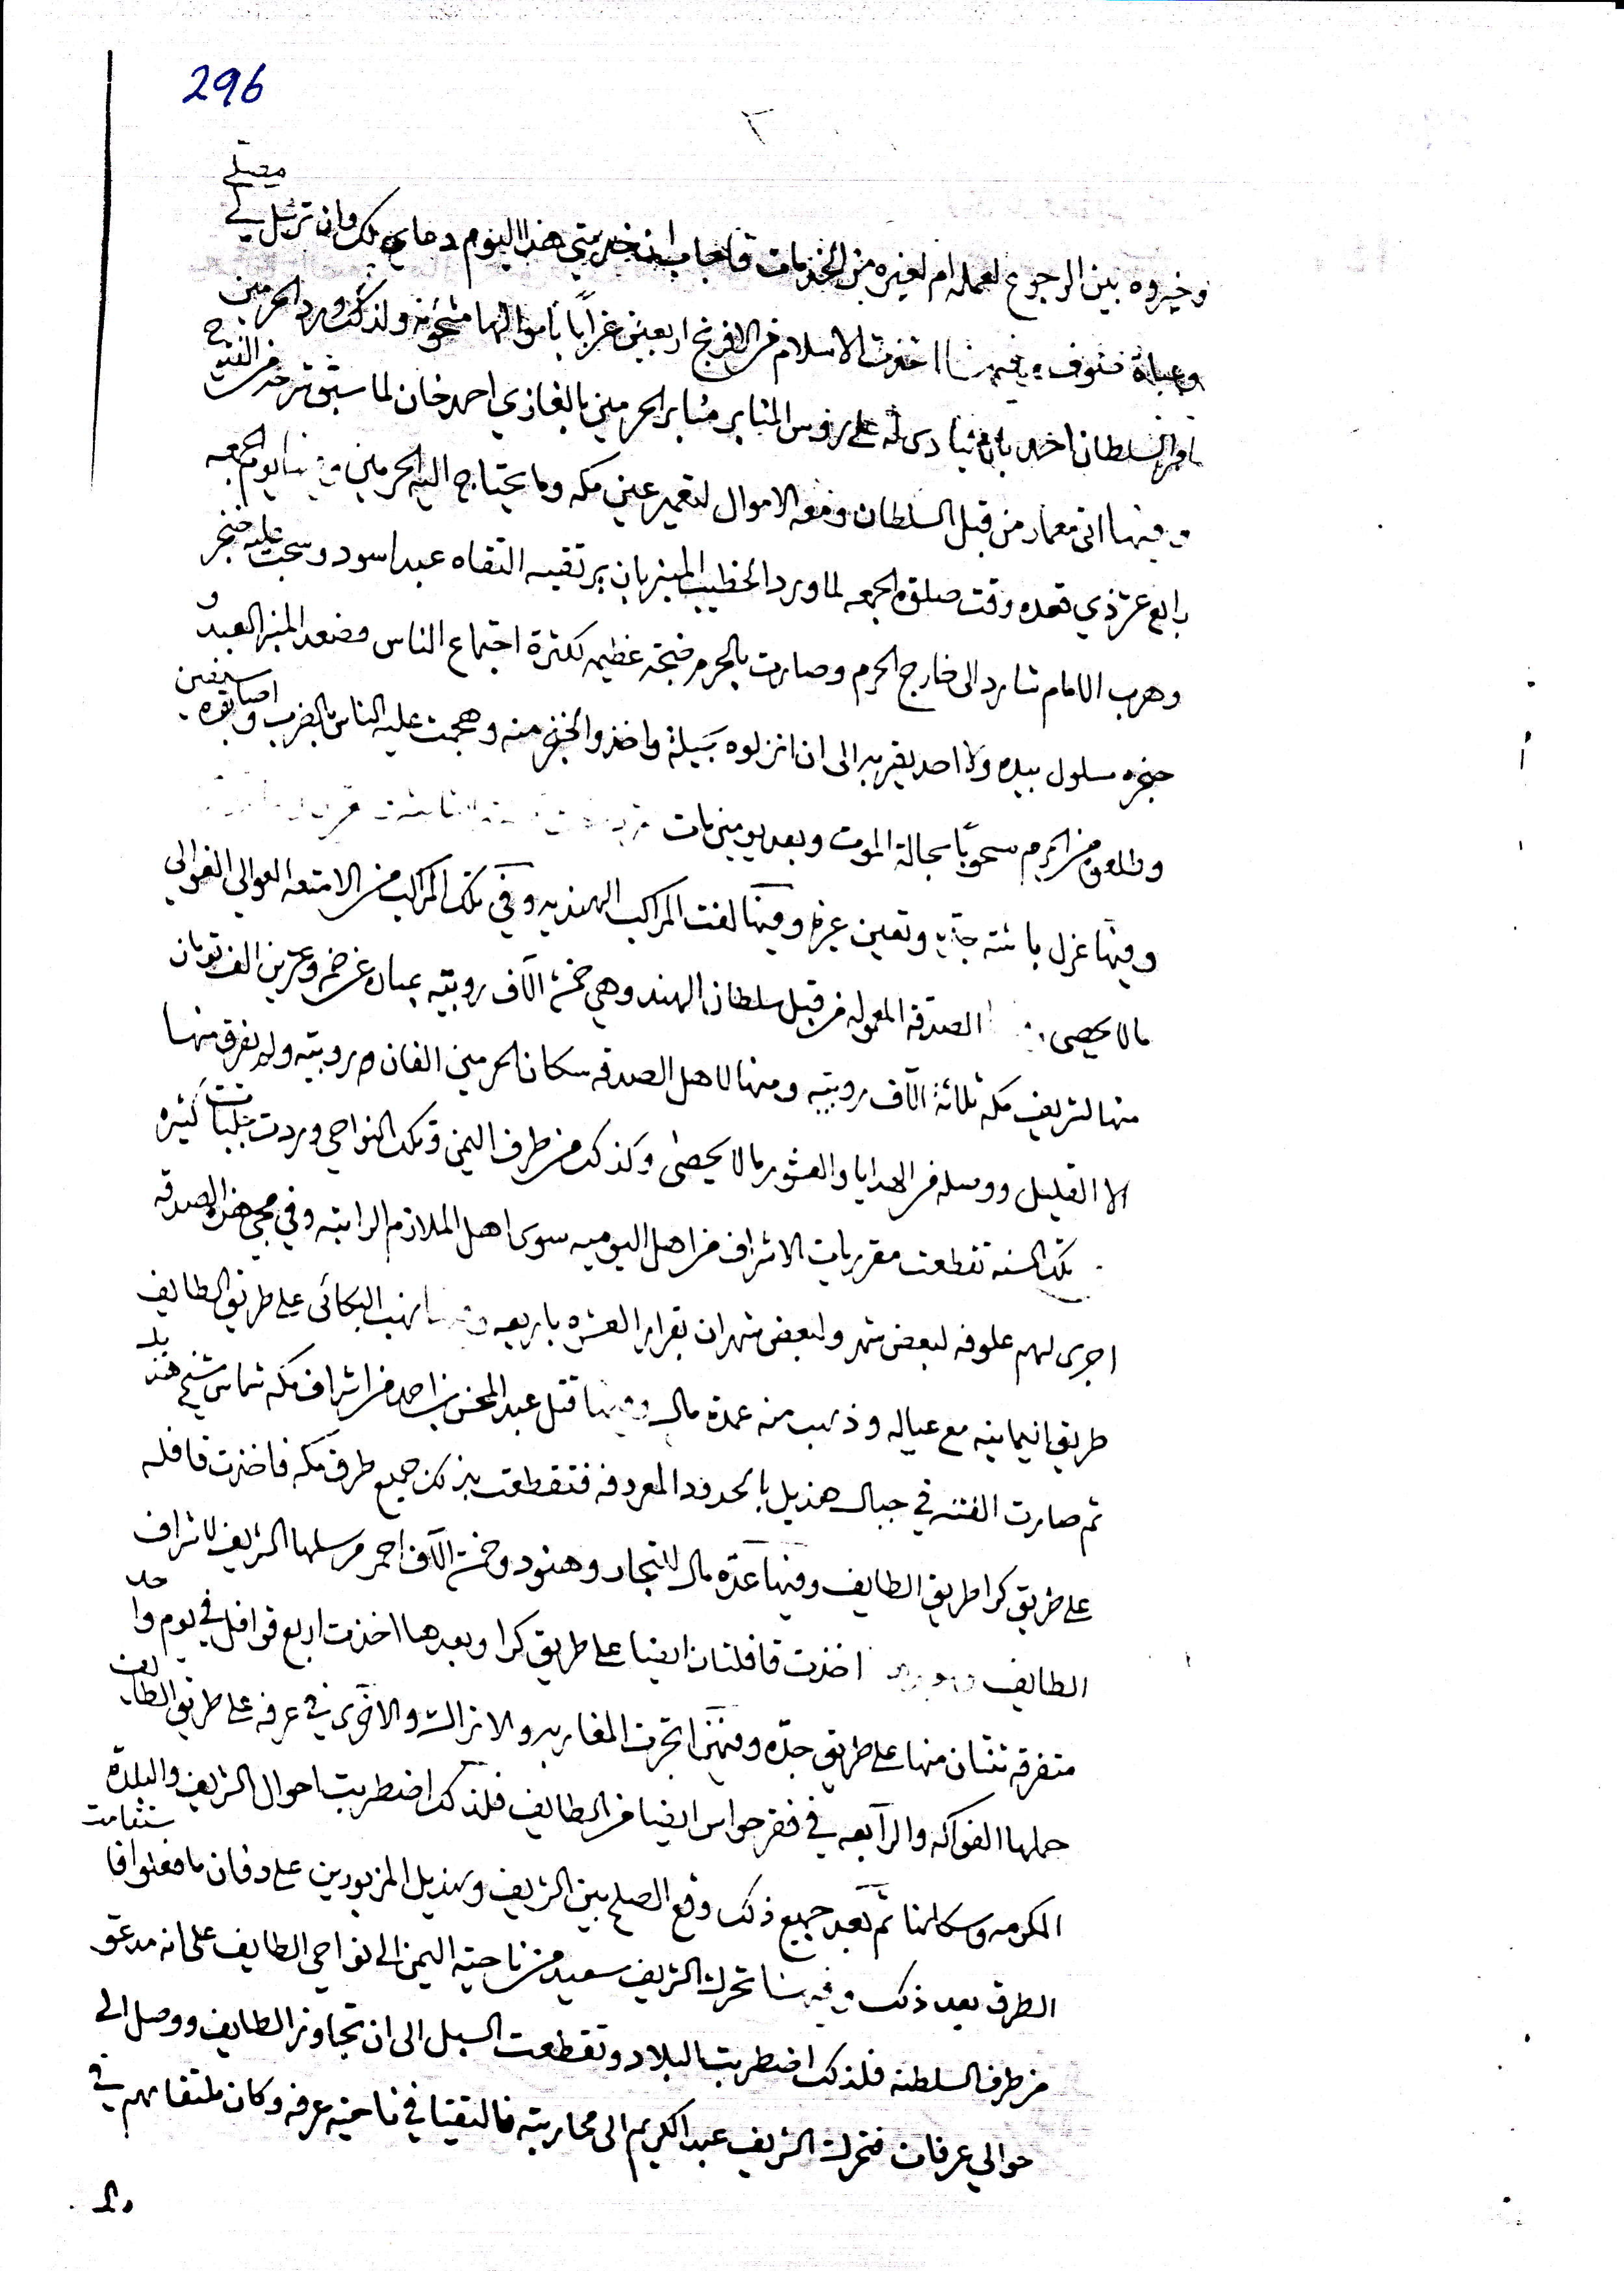 296
٢
وخيروه بين الرجوع لعمله ام لغيره من الخدمات فاجاب ان خدمتي هذا اليوم دعاي لك وان ترسل لي مصلى
وعباة صوف وفيها اخذت الاسلام من الافرنج اربعين غرابًا باموالها مشحونه ولذلك ورد الحرمين
امر السلطان احمد بان ينادى له على روس المنابر منابر الحرمين بالغازي احمد خان لما سبق شرحه من الفتوح
وفيها اتى معمار من قبل السلطان ومعه الاموال لتعمير عين مكه وما يحتاج اليه الحرمين وفيها يوم الجمعه
رابع عشر ذي قعده وقت صلوة الجمعه لما ورد الخطيب المنبر بان يرتقيه التقاه عبد اسود وسحب عليه خنجر
وهرب الامام شارد الى خارج الحرم وصارت بالحرم ضجة عظيمه لكثرة اجتماع الناس وصعد المنبر العبد و
خنجره مسلول بيده ولا احد يقربه الى ان انزلوه بحيلة واخذوا الخنجر منه وهجمت عليه الناس بالضرب
وطلعوه من الحرم سحوبًا بحالة الموت وبعد يومين مات
وفيها عزل باشة جده وتعين غيره وفيها لفت المراكب الهنديه وفي تلك المراكب من الامتعه العوالي الغوالي
مالا يحصى الصدقه المعموله من قبل سلطان الهند وهي خمسة الآف روبيه عبارة عن خمسه وعشرين الف تومان
منها لشريف مكه ثلاثة الآف روبيه ومنها لاهل الصدقه سكان الحرمين الفان روبيه ولم يفرق منها
الا القليل ووصله من الهدايا والعشور مالا يحصى وكذلك من طرف اليمن وتلك النواحي وردت كثيره
تلك السنه تقطعت مقرريات الاشراف من اهل اليوميه سوى اهل الملازم الراتبه وفي مجي هذه الصدقه
اجرى لهم علوفه لبعض شهر ولبعض شهران بقرار العشره باربعه وفيها نهب البكائى على طريق الطايف
طريق اليمانيه مع عياله وذهب منه عمدة مال وفيها قتل عبد المحسن بن احمد من اشراف مكه شماس شيخ هذيل
ثم صارت الفتنه في جبال هذيل بالحدود المعروفه فتقطعت بذلك جميع طرق مكه فاخذت قافله
على طريق كرا طريق الطايف وفيها عدة مال لاتجار وهنود وخمسة الآف احمر مرسلها الشريف لاشراف
الطايف اخذت قافلتان ايضا على طريق كرا وبعدها اخذت اربع قوافل في يوم واحد
متفرقه ثنتان منها على طريق جده وفيها تجرت المغاربه والاتراك والاخرى في عرفه على طريق الطايف
حملها الفواكه والرابعه في ايضا من الطايف فلذلك اضطربت احوال الشريف والبلدة
المكرمه وسكانها ثم بعد جميع ذلك وقع الصلح بين الشريف وهذيل المزبورين على دفان ما فعلوا فاستقامت
الطرق بعد ذلك وفيها تحرك الشريف سعيد من ناحية اليمن الى نواحي الطايف على انه مدعو
من طرف السلطنه فلذلك اضطربت البلاد وتقطعت السبل الى ان تجاوز الطايف ووصل الى
حوالي عرفات فتحرك الشريف عبد الكريم الى محاربته فالتقيا في ناحية عرفه وكان ملتقاهم في